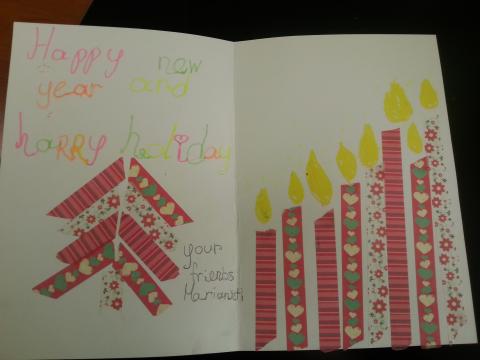 Happy new
year and
happy holiday
your
frients